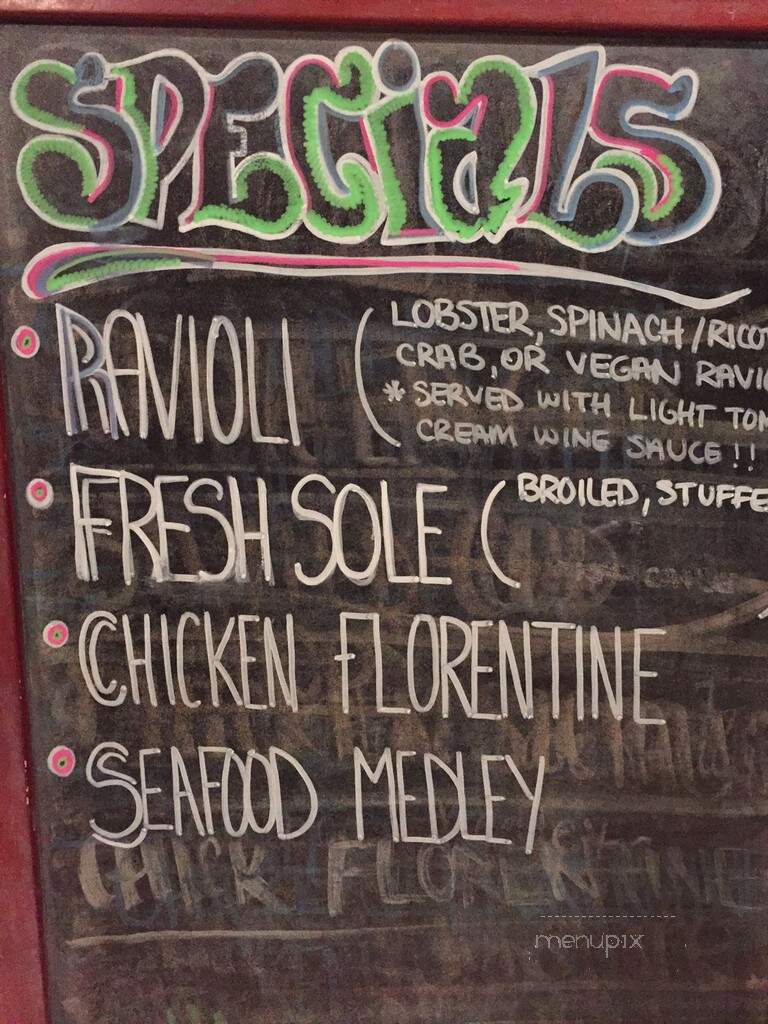 SPECIALS
RAVIOLI (LOBSTER, SPINACH/RICO
CRAB, OR VEGAN RAVI
* SERVED WITH LIGHT TOM
CREAM WINE SAUCE!!
FRESH SOLE (BROILED, STUFFE
CHICKEN FLORENTINE
SEAFOOD MEDLEY
CHICK FLOREN
menupix